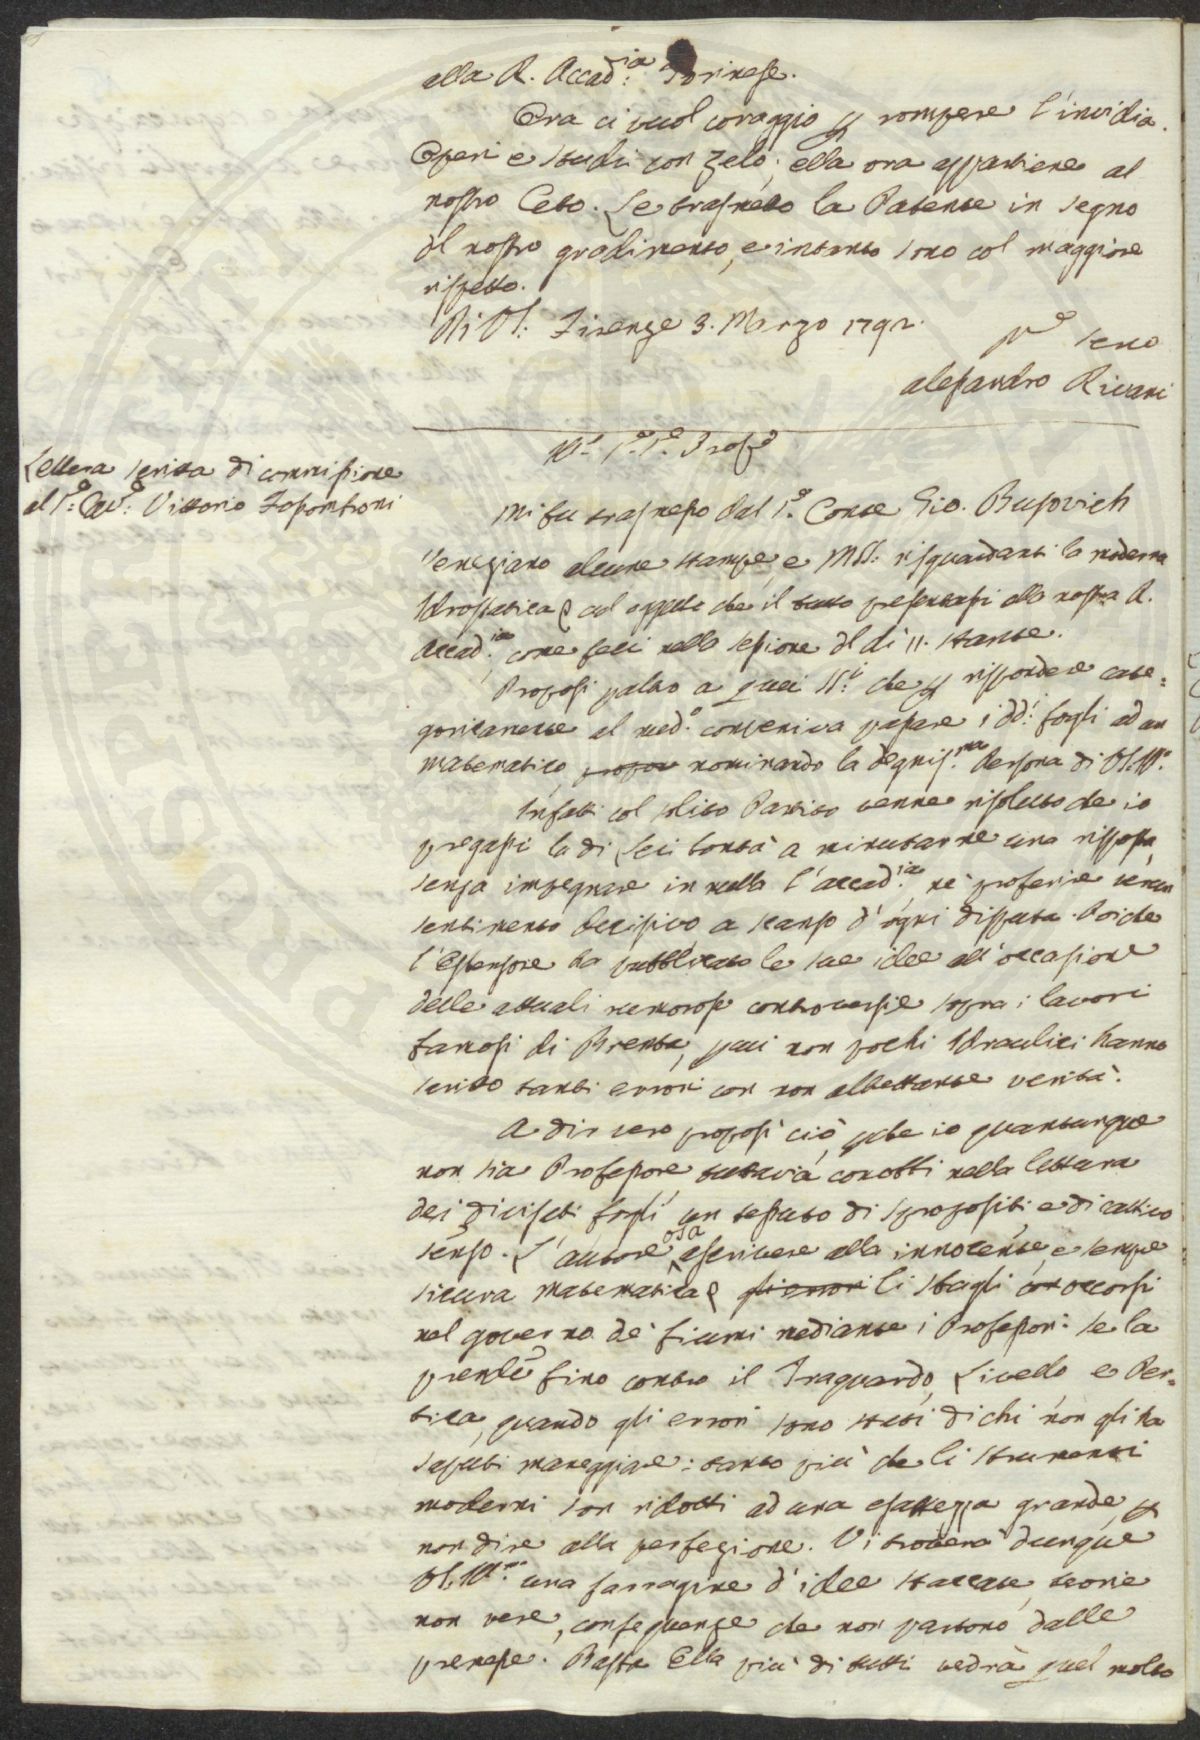 alla R. Accad.ia Torinese.
Ora ci vuol coraggio p rompere l'invidia.
Operi e studi con zelo; ella ora appartiene al
nostro Ceto. Le trasmetto la Patente in segno
dl nostro gradimento, e intanto sono col maggiore
rispetto.
Di VS: Firenze 3. Marzo 1792.
Servo
Alessandro Rivani
Lettera scritta di commissione
al S.r Cav.e Vittorio Fossombroni
Mi fu trasmesso dal S.r Conte Gio. Bujovich
Veneziano alcune stampe, e MSS: risguardanti la moderna
Idrostatica col oggetto che il tutto presentassi alla nostra R.
Accad.ia, come feci nella sessione dl dì 11. stante.
Proposi passo a quei SS.i che p rispondere cate=
goricamente al med.o conveniva passare i dd.i fogli ad un
matematico, nominando la degnis.ma Persona di VS. Ill.ma
Infatti col solito Partito venne risoluto che io
pregassi la di Lei bontà a minutarne una risposta
senza impegnare in nulla l'accad.ia, nè proferire verun
sentimento decisivo a scanso d'ogni disputa. Poiche
l'Estensore ha pubblicato le sue idee all'occasione
delle attuali rumorose controversie sopra i lavori
famosi di Brenta, qui non pochi Idraulici hanno
scritto tanti errori con non altrettante verità.
A dir vero proposi ciò, pche io quantunque
non sia Professore tuttavia conobbi nella lettura
dei divisati fogli un tessuto di spropositi, e di cattivo
senso. L'autore osa ascrivere alla innocente, e sempre
sicura matematica gli errori li sbagli occorsi
nel governo de' fiumi mediante i Professori: se la
prende fino contro il Traguardo, Livello e Per=
tica, quando gli errori sono stati di chi non gli ha
saputi maneggiare: tanto più che li strumenti
moderni son ridotti ad una esattezza grande, p
non dire alla perfezione. Vi troverà dunque
VS. Ill.ma una farragine d'idee staccate, teorie
non vere, conseguenze che non partono dalle
premesse. Basta Ella più di tutti vedrà quel molto